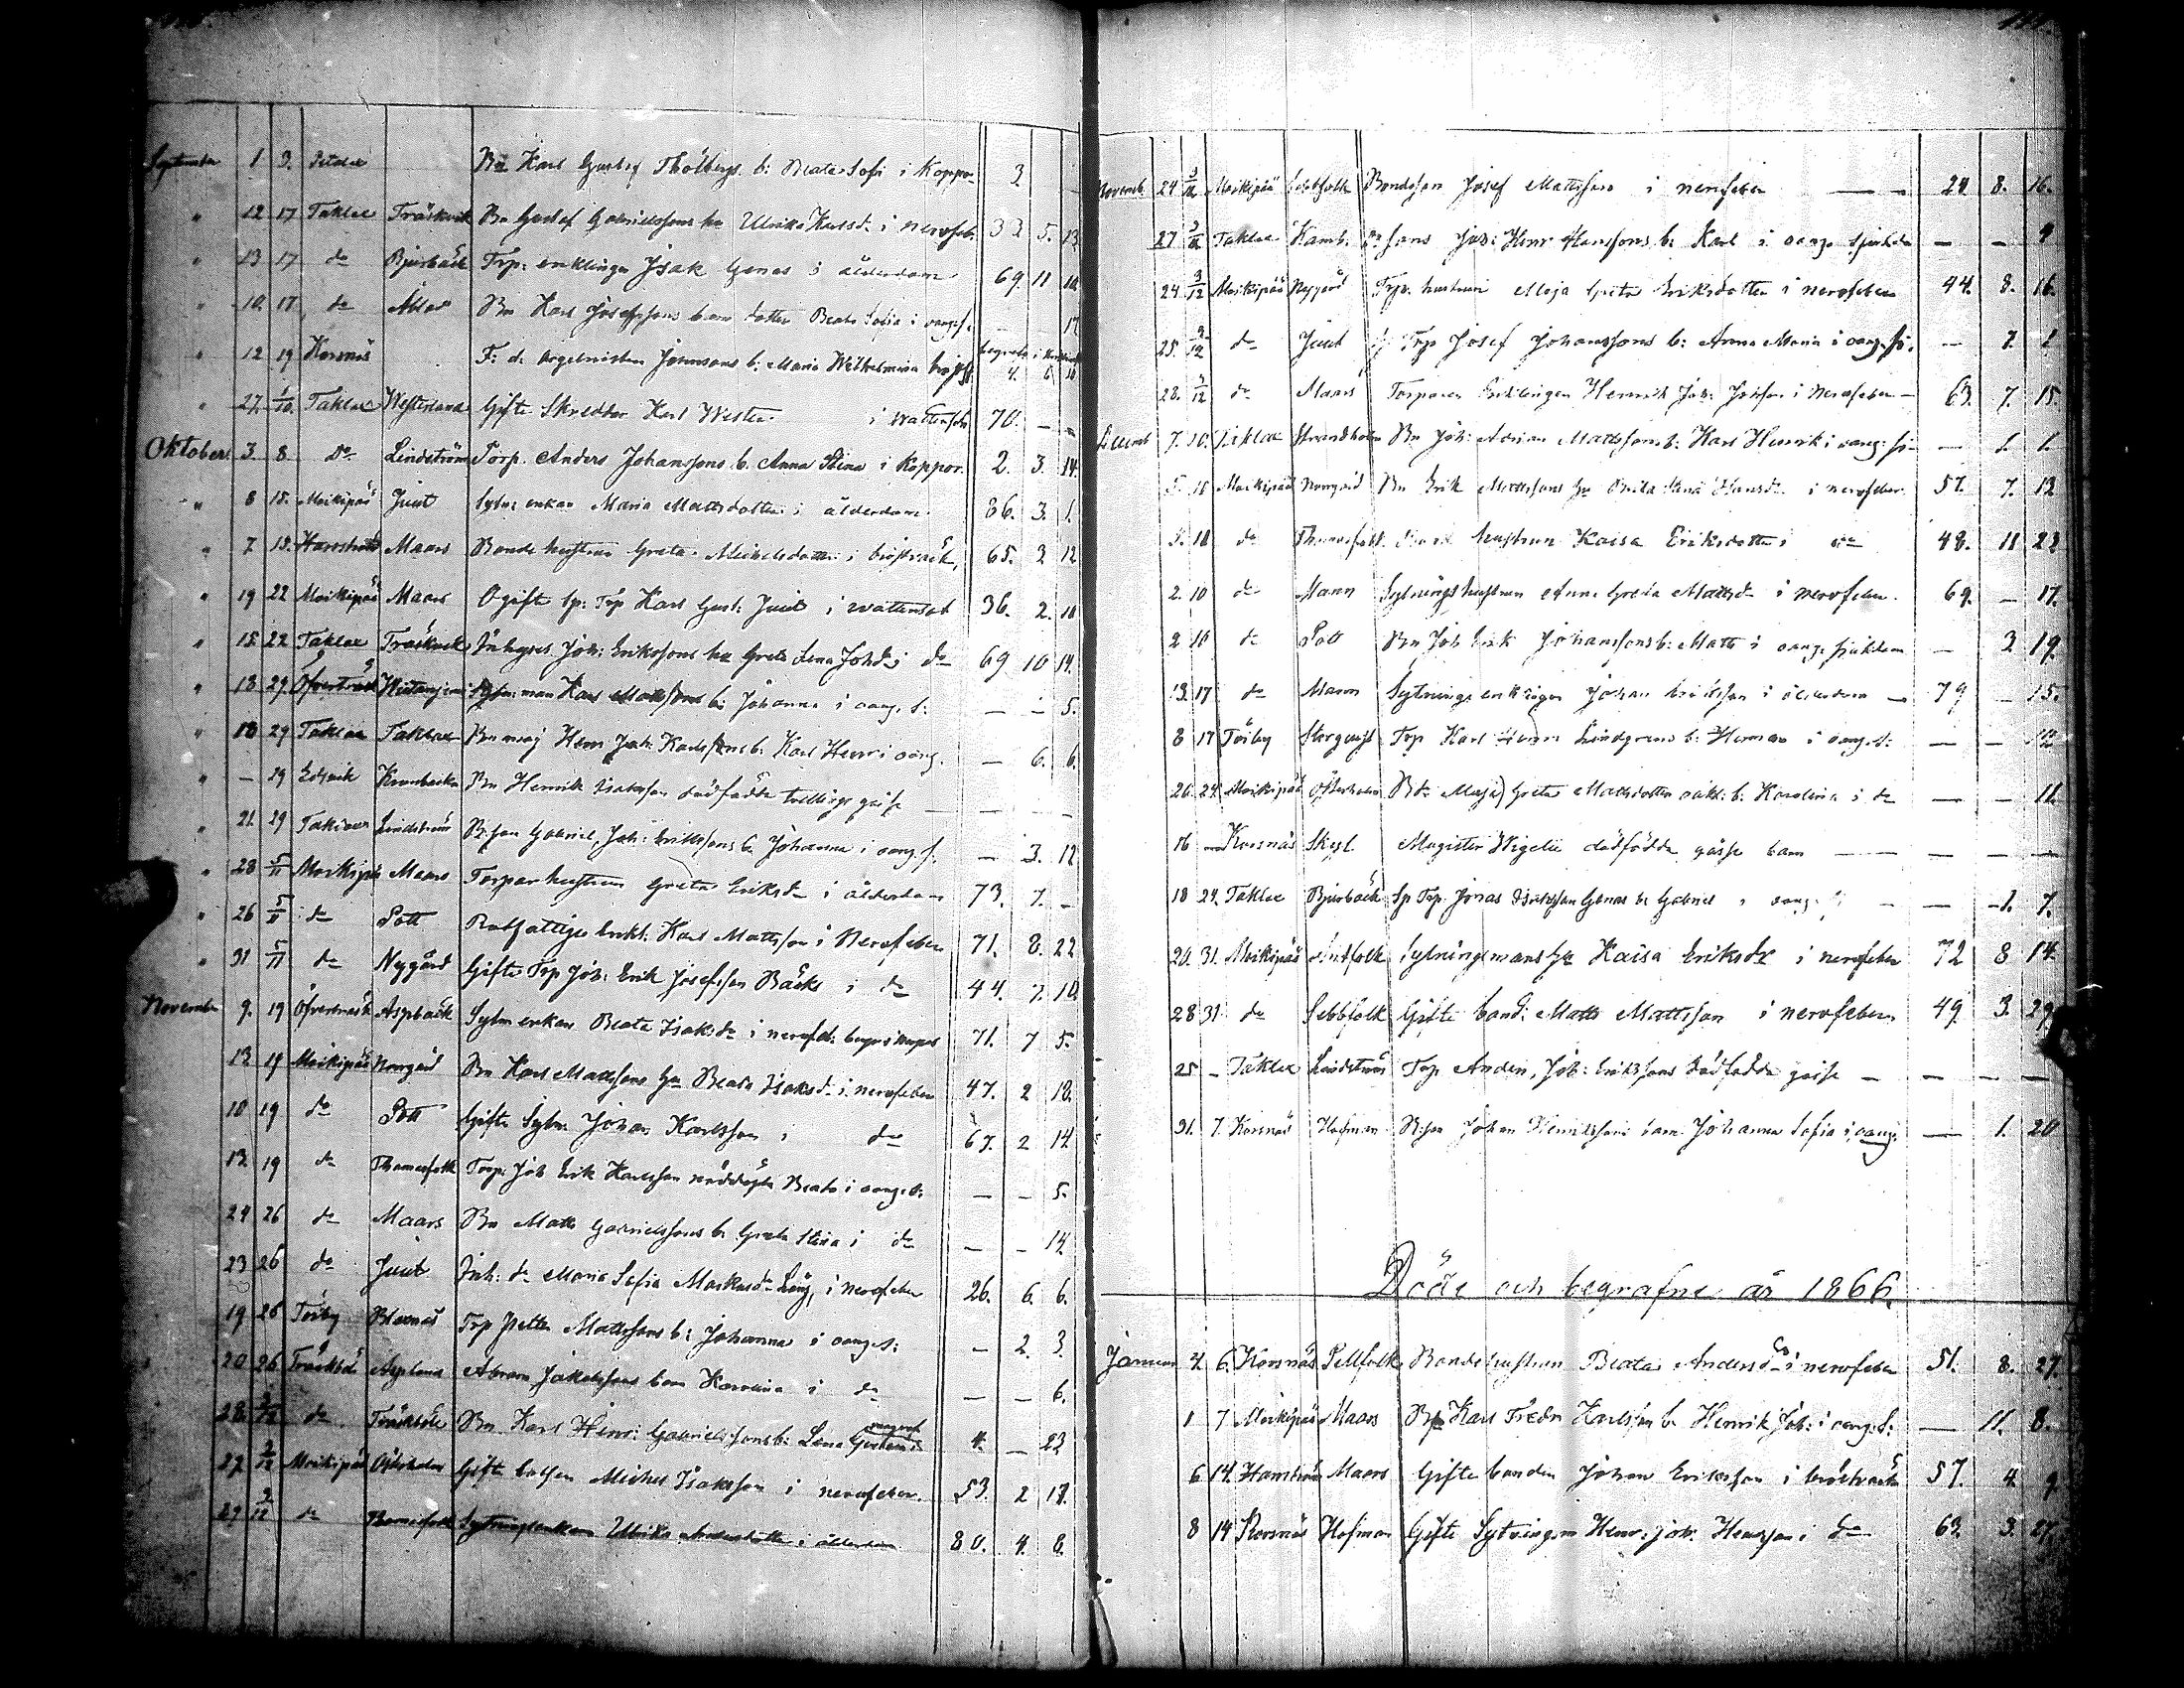 September 1 9. Petalax Bn Karl Gustaf b: Beata Sofi i Koppor 3
" 12 17 Taklax Träskvik Bn Gustaf Gabrielssons hu Ulrika Karlsd: i nervfeb. 32 5. 13
" 13 17 do Bjurbäck Torp: enklingen Isak Genas i ålderdom 69 11 10
" 10. 17 do Bn Karl Josefssons barn dotter Beata Sofia i oang. s. 17
" 12 19 Korsnäs F: d. Orgelnisten b: Maria Wilhelmina 4. 6
" 27. 1/10. Taklax Westerlund Gifte Skräddar Karl Wester i Wattensot 70. – –
Oktober 3. 8. do Lindström Torp. Anders Johanssons b. Anna Stina i Koppor. 2. 3. 14.
" 8 15. Moikipää Juut Sytn: enkan Maria Mattsdotter i ålderdom 86. 3. 1.
" 7 15. Maars Bonde hustrun Greta Michelsdotter i bröstvärk, 65. 3 12
" 19 22 Moikipää Maars Ogifte sp: Torp Karl Gust: Juut i wattensot 36. 2. 10
" 15 22 Taklax Träskvik Inhyses Joh: Erikssons hu Greta Lena Johsd: i do 69 10 14.
" 18 29 Öfverträsk man Karl Mattssons b: Johanna i oang. s: – – 5.
" 18 29 Taklax Taklax Bn måg Henr Joh: Karlssons b. Karl Henr i oang. – 6. 6.
" – 29 Edsvik Kornbacka Bn Henrik Isaksson dödfödde tvillings gosse – – –
" 21. 29 Taklax Lindström B: son Gabriel, Joh: Erikssons b. Johanna i oang. s. – 3. 12
" 28 5/11 Moikipää Maars Torparhustrun Greta Eriksd: i ålderdom 73. 7. –
" 26 5/11 do Pott Rotfattige enkl: Karl Mattsson i Nervfeber 71. 8. 22
" 31 5/11 do Nygård Gifte Torp Joh: Erik Josefsson Bäck i do 44. 7. 10
November 9. 19 Öfverträsk Aspback Sytn enkan Beata Isaksd: i nervfeb: 71. 7 5.
13 19 Moikipää Norrgård Bn Karl Mattssons hu Beata Isaksd: i nervfeber 47. 2 18.
10 19 do Pott Gifte Sytn: Johan Karlsson i do 67. 2 14
13 19 do Thomasfolk Torp: Joh Erik Karlsson nöddöpta Beata i oang. s: – – 5.
24 26 do Maars Bn Matts Gabrielssons b. Greta Stina i do – – 14.
23 26 do Juut Inh: do Maria Sofia Markusd: i nervfeber 26. 6. 6.
19 26 Töjby Blaxnäs Torp Petter Mattssons b: Johanna i oang. s: – 2. 3.
20 26 Träskböle Asplund Abram Jakobssons barn Karolina i do – – 6.
28 3/12 do Träskböle Bn Karl Henr: Gabrielssons b: Lena 4. – 23
27 3/12 Moikipää Österholm Gifte Michel Isaksson i nervfeber. 53. 2 17.
29 3/12 do Sytningsenkan Ulrika Andersdotter i ålderdom 80. 4. 8.
Novemb. 24 3/12 Moikipää Sebbfolk Bondeson Josef Mattsson i nervfeber 24. 8. 16.
27 3/12 Taklax Kamb. sons Joh: Henr Hanssons b. Karl i oang. sjukdom – – 9
24 3/12 Moikipää Nygård Torp. hustrun Maja Greta Eriksdotter i nervfeber 44. 8. 16.
25. 3/12 do Juut Torp Josef Johanssons b: Anna Maria i oang. sj. – 7. 1.
28. 3/12 do Maars Torparen Enklingen Henrik Joh: Johsson i nervfeber – 63. 7. 15.
Decemb 7. 10. Taklax Strandholm Bn Joh: Adrian Mattssons b. Karl Henrik i oang: sj – 1. 1.
5. 10 Moikipää Norrgård Bn Erik Mattssons hu Brita Lena Hansd: i nervfeber 57. 7. 13
5. 10 do Thomasfolk hustrun Kaisa Eriksdotter i do 48. 11 22
2. 10 do Mann Sytningshustrun Anna Greta Mattsd: i nervfeber. 69. – 17.
2 10 do Pott Bn Joh Erik Johanssons b: Matts i oang. sjukdom – 3 19.
13. 17 do Mann Sytnings enklingen Johan Eriksson i ålderdom – 79 – 15.
8 17 Töjby Torp Karl Henr Lindgrens b: Herman i oang. s: – –
20. 24. Moikipää Österholm B do Maja Greta Mattsdotter oäkt: b. Karolina i do – – 11.
16 – Korsnäs Magister Wigelii dödfödde gosse barn – – –
18 24. Taklax Bjurbäck Sp Torp. Jonas Isaksson Genas b: Gabriel i oang. – 1. 7.
20. 31. Moikipää Sytningsmans hu Kaisa Eriksdr i nervfeber 72 8 14.
28 31 do Sebbfolk Gifte bond: Matts Mattsson i nervfeber 49. 3. 29
25 – Taklax Lindström Torp Anders, Joh: Erikssons dödfödde gosse – – – –
31. 7. Korsnäs Hofman B: son Johan Henrikssons barn Johanna Sofia i oang. – 1. 20
Döde och begrafne år 1866.
Januari 4. 6. Korsnäs Pellfolk Bondehustrun Beata Andersd: i nervfeber 51. 8. 27.
1 7 Moikipää Maars Karl Fredr Karlsson b. Henrik Joh: i oang. s: – 11. 8.
6 14. Maars Gifte bonden Johan Eriksson i bröstvärk 57. 4. 9
8 14 Korsnäs Hofman Gifte Sytningm Henr: Joh: Henrsson i do 63. 3. 27.